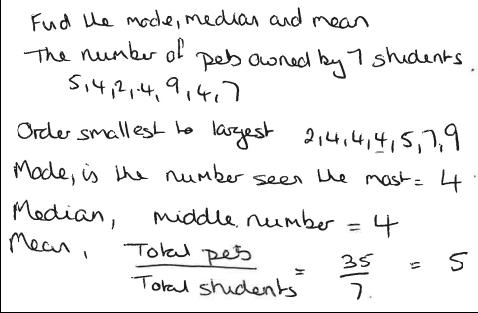 Find the mode, median and mean
The number of pets owned by 7 students.
5,4,2,4,9,4,7
Order smallest to largest 2,4,4,4,5,7,9
Mode, is the number seen the most = 4
Median, middle number = 4
Mean, Total pets / Total students = 35 / 7 = 5